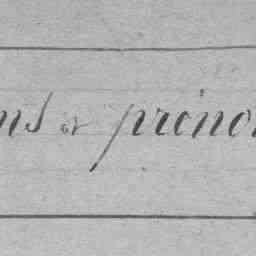 ms et préno